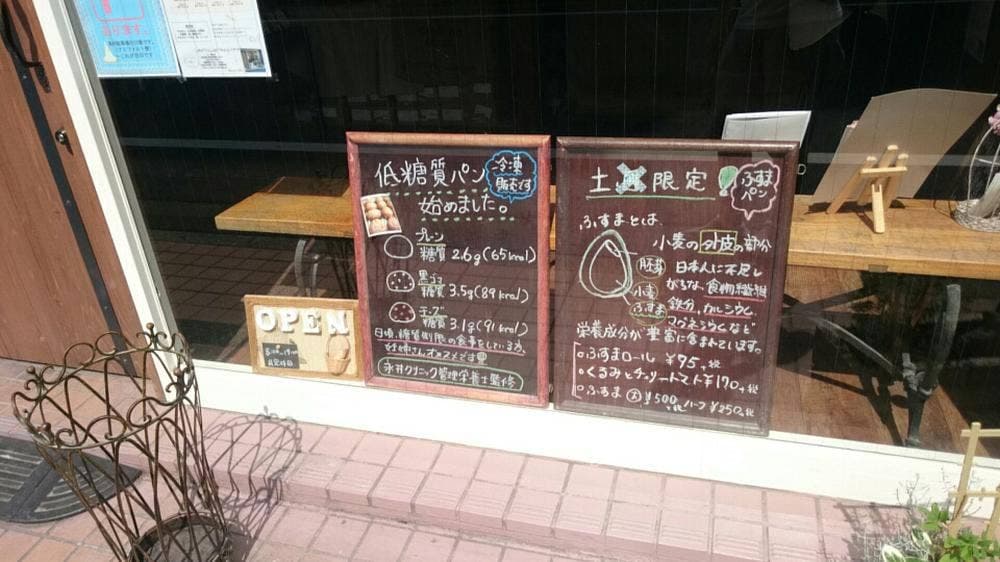 低糖質パン
冷凍
販売です
始めました。
プレーン
糖質 2.6g(65kcal)
黒ゴマ
糖質 3.5g(89kcal)
チーズ
糖質 3.1g(91kcal)
日頃、糖質制限の食事をしている方、
妊婦さんオススメです
永井クリニック管理栄養士監修
土 限定
ふすま
パン
ふすまとは、
小麦の外皮の部分
胚芽
小麦
ふすま
日本人に不足し
がちな、食物繊維
鉄分、カルシウム、
マグネシウムなど
栄養成分が豊富に含まれています。
ふすまロール ¥95+税
くるみとチェリートマト¥170+税
ふすま 大 ¥500+税 ハーフ ¥250+税
OPEN